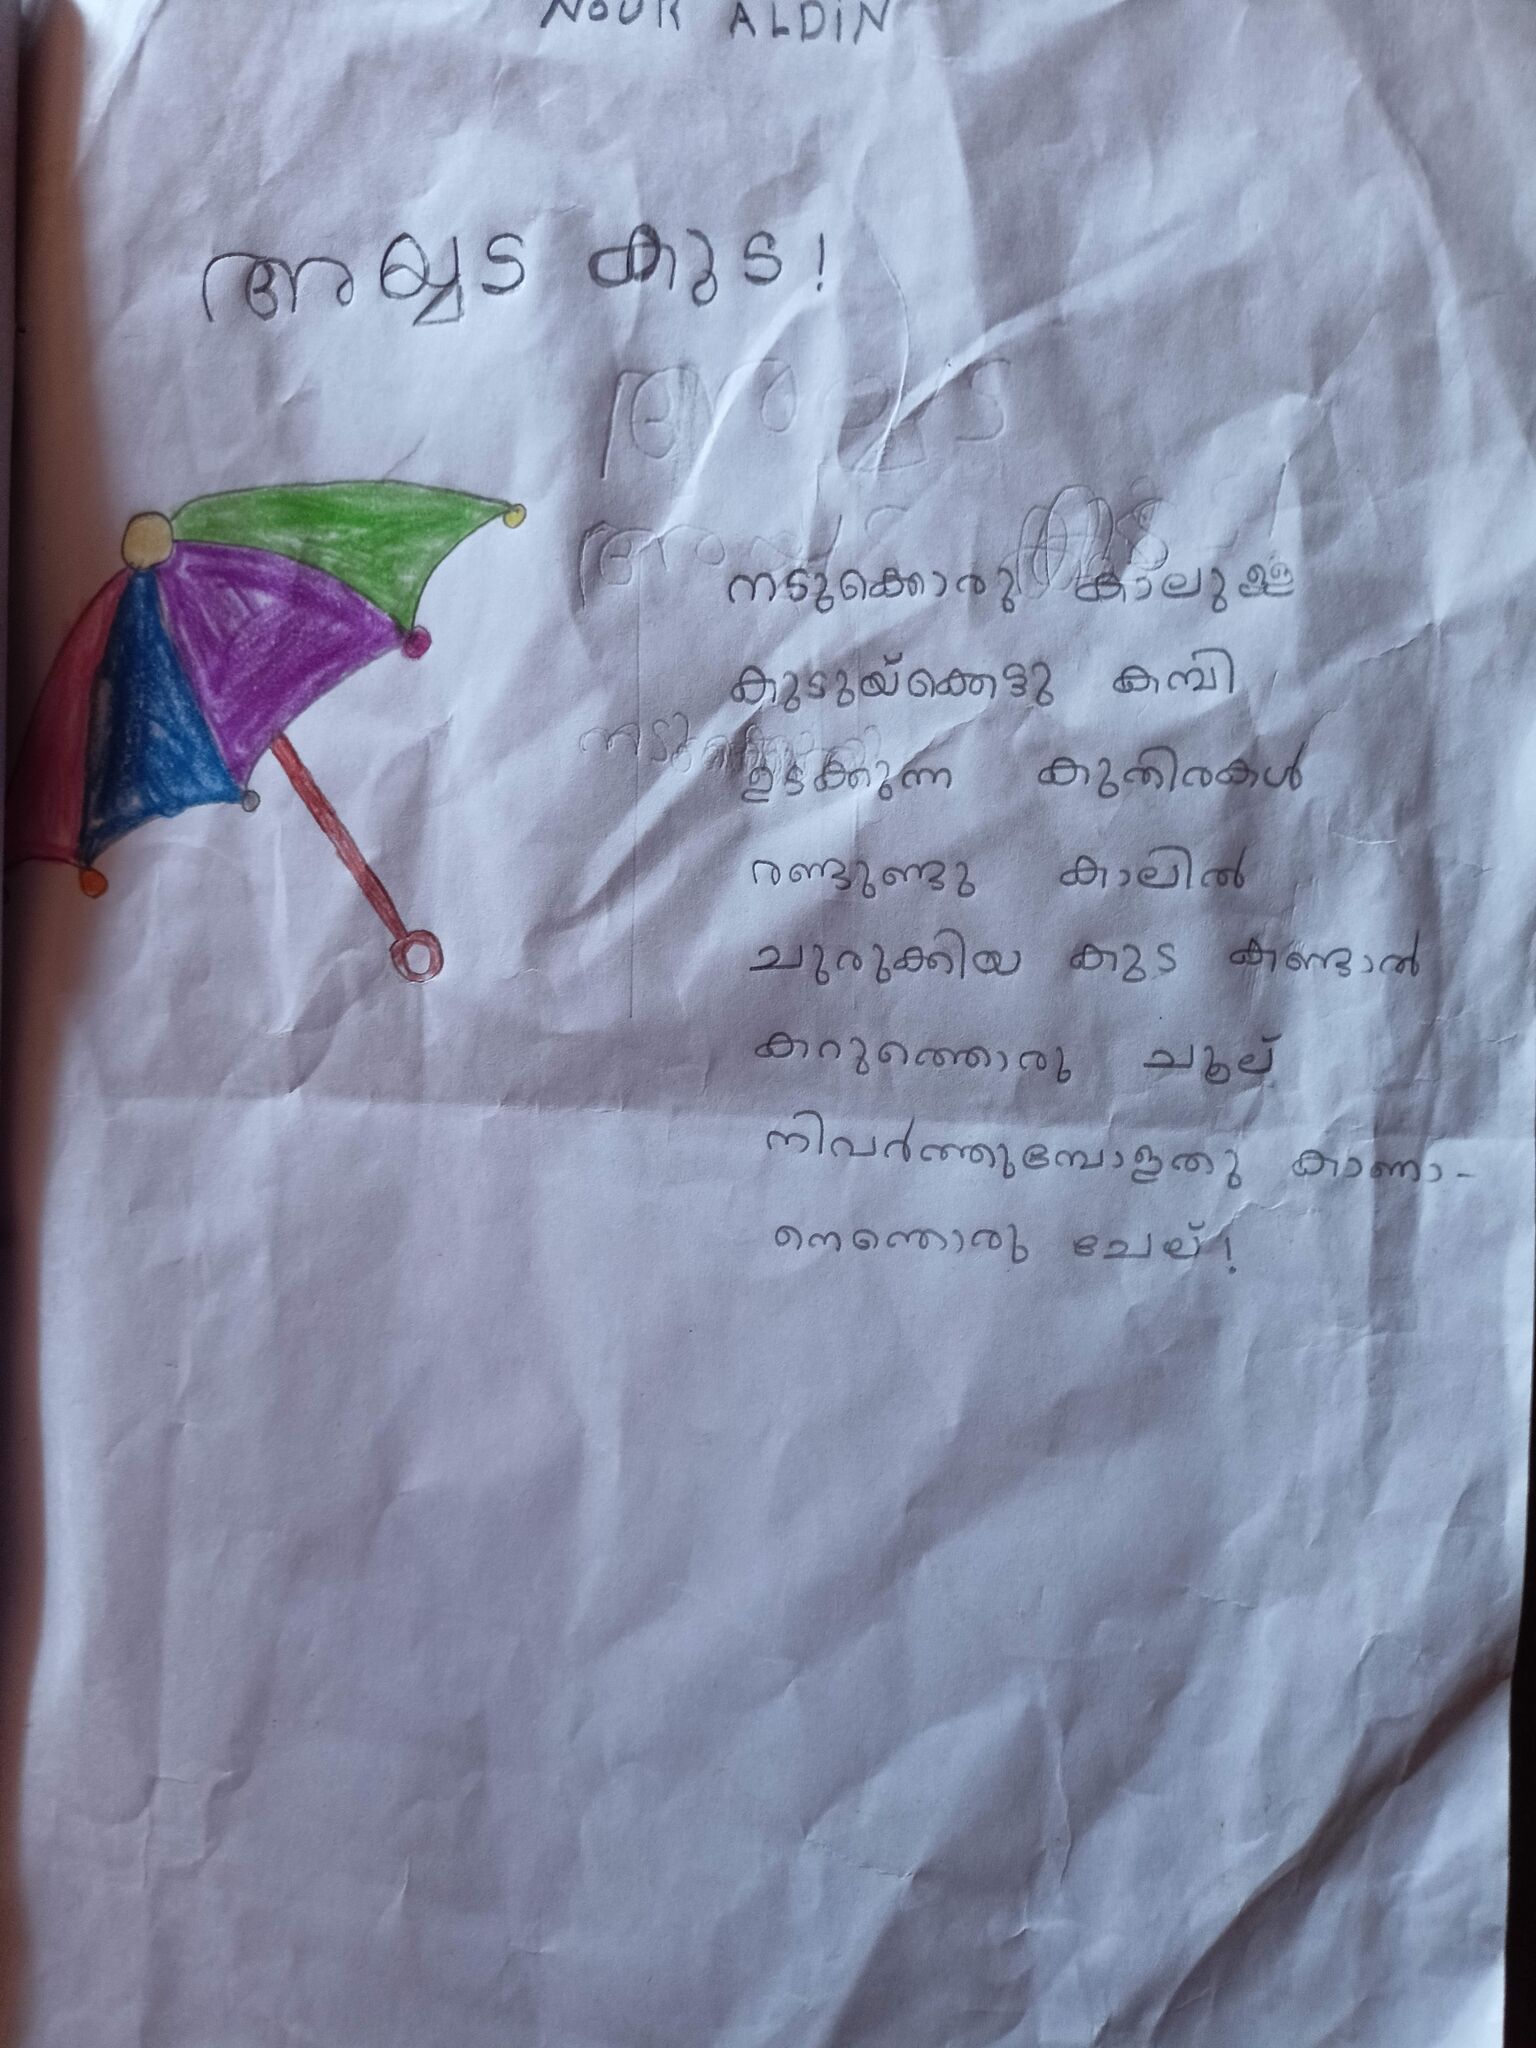 NOUR ALDIN
അയ്യട കുട!
നടുക്കൊരു കാലുള്ള
കുടുയ്ക്കെട്ടു കമ്പി
ഉടക്കുന്ന കുതിരകൾ
രണ്ടുണ്ടു കാലിൽ
ചുരുക്കിയ കുട കണ്ടാൽ
കറുത്തൊരു ചൂല്
നിവർത്തുമ്പോളതു കാണാ-
നെന്തൊരു ചേല്!